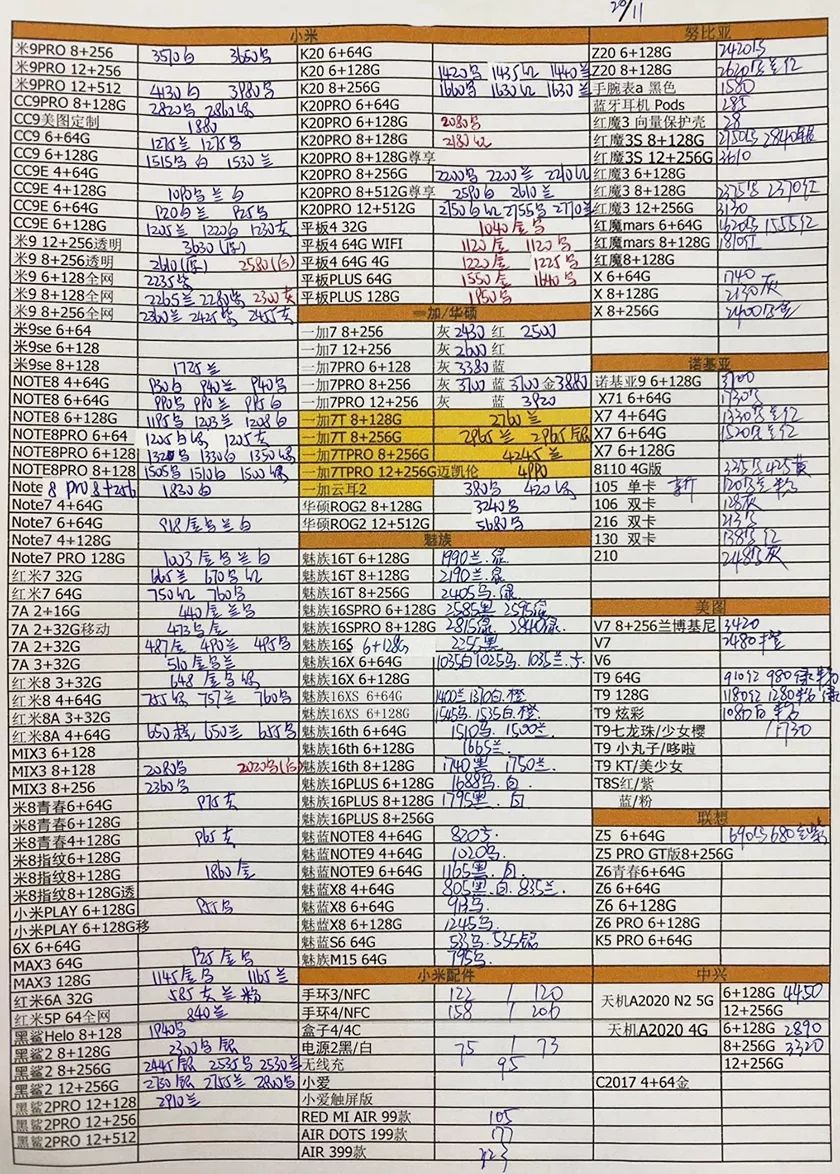 20/11
小米
米9PRO 8+256 3570白 3650乌
米9PRO 12+256
米9PRO 12+512 4130白 3980乌
CC9PRO 8+128G 2820乌 2860绿
CC9美图定制 1880
CC9 6+64G 1275兰 1275乌
CC9 6+128G 1515乌 白 1530兰
CC9E 4+64G
CC9E 4+128G 1090乌 兰 白
CC9E 6+64G 920白兰 925乌
CC9E 6+128G 1205兰 1220白 1230灰
米9 12+256透明 3630
米9 8+256透明 2610 2580
米9 6+128全网 2235乌
米9 8+128全网 2265兰 2280乌 2300灰
米9 8+256全网 2360兰 2425乌 2455灰
米9se 6+64
米9se 6+128
米9se 8+128 1725兰
NOTE8 4+64G 930白 940兰 940乌
NOTE8 6+64G 990乌 990兰 995白
NOTE8 6+128G 1195乌 1203兰 1208白
NOTE8PRO 6+64 1225白绿 1205灰
NOTE8PRO 6+128 1320乌 1330白 1350绿
NOTE8PRO 8+128 1505乌 1510白 1500绿
Note 8 pro 8+256 1830白
Note7 4+64G
Note7 6+64G 918金乌兰白
Note7 4+128G
Note7 PRO 128G 1003金乌兰白
红米7 32G 665兰 670乌红
红米7 64G 750红 760乌
7A 2+16G 440金兰乌
7A 2+32G移动 473乌金
7A 2+32G 487金 490兰 495乌
7A 3+32G 510金乌兰
红米8 3+32G 648金乌绿
红米8 4+64G 755绿 757兰 760乌
红米8A 3+32G
红米8A 4+64G 650兰 655乌
MIX3 6+128
MIX3 8+128 2080乌 2020乌
MIX3 8+256 2360乌
米8青春6+64G 975灰
米8青春6+128G
米8青春4+128G 965灰
米8指纹6+128G
米8指纹8+128G 1860金
米8指纹8+128G透
小米PLAY 6+128G 855乌
小米PLAY 6+128G移
6X 6+64G
MAX3 64G 925金乌
MAX3 128G 1145金乌 1165兰
红米6A 32G 585灰兰粉
红米5P 64全网 840兰
黑鲨Helo 8+128 1940乌
黑鲨2 8+128G 2300乌银
黑鲨2 8+256G 2445银 2535乌 2530兰
黑鲨2 12+256G 2730银 2755兰 2800乌
黑鲨2PRO 12+128 2910兰
黑鲨2PRO 12+256
黑鲨2PRO 12+512
K20 6+64G
K20 6+128G 1420乌 1435红 1440兰
K20 8+256G 1600乌 1630红 1630兰
K20PRO 6+64G
K20PRO 6+128G 2080乌
K20PRO 8+128G 2180红
K20PRO 8+128G尊享
K20PRO 8+256G 2200乌 2200兰 2210红
K20PRO 8+512G尊享 2590白 2610兰
K20PRO 12+512G 2750白红 2755乌 2770兰
平板4 32G 1040金乌
平板4 64G WIFI 1120金 1120乌
平板4 64G 4G 1220金 1225乌
平板PLUS 64G 1550金 1640乌
平板PLUS 128G 1950乌
一加/华硕
一加7 8+256 灰 2430 红 2500
一加7 12+256 灰 2600 红
一加7PRO 6+128 灰 3380 蓝
一加7PRO 8+256 灰 3700 蓝 3700 金 3880
一加7PRO 12+256 灰 蓝 3920
一加7T 8+128G 2760兰
一加7T 8+256G 2965兰 2965银
一加7TPRO 8+256G 4245兰
一加7TPRO 12+256G迈凯伦 4990
一加云耳2 380乌 420绿
华硕ROG2 8+128G 3240乌
华硕ROG2 12+512G 5680乌
魅族
魅族16T 6+128G 1990兰.绿
魅族16T 8+128G 2190兰.绿
魅族16T 8+256G 2405乌.绿
魅族16SPRO 6+128G 2585黑 2595绿
魅族16SPRO 8+128G 2815绿 2840绿.
魅族16S 6+128G 2255黑
魅族16X 6+64G 1035白1025乌.1035兰.
魅族16X 6+128G
魅族16XS 6+64G 1400兰 1310白.橙
魅族16XS 6+128G 1545乌.1535白.橙.
魅族16th 6+64G 1510乌.1500兰.
魅族16th 6+128G 1665兰.
魅族16th 8+128G 1740黑 1750兰.
魅族16PLUS 6+128G 1688乌.白.
魅族16PLUS 8+128G 1795黑.白
魅族16PLUS 8+256G
魅蓝NOTE8 4+64G 820乌.
魅蓝NOTE9 4+64G 1020乌.
魅蓝NOTE9 6+64G 1165黑.白.
魅蓝X8 4+64G 805黑.白.835兰.
魅蓝X8 6+64G 913乌.
魅蓝X8 6+128G 1245乌.
魅蓝S6 64G 533乌.535银
魅族M15 64G 795乌.
小米配件
手环3/NFC 122 / 120
手环4/NFC 158 / 206
盒子4/4C
电源2黑/白 75 / 73
无线充 95
小爱
小爱触屏版
RED MI AIR 99款 105
AIR DOTS 199款 177
AIR 399款
努比亚
Z20 6+128G 2420乌
Z20 8+128G 2620乌兰红
手腕表a 黑色 1580
蓝牙耳机 Pods 285
红魔3 向量保护壳 28
红魔3S 8+128G 2750乌 2840
红魔3S 12+256G 3610
红魔3 6+128G
红魔3 8+128G 2375乌 2370红
红魔3 12+256G 3130
红魔mars 6+64G 1620乌 1555红
红魔mars 8+128G 1810红
红魔8+128G
X 6+64G 1740
X 8+128G 2130灰
X 8+256G 2400乌兰
诺基亚
诺基亚9 6+128G 3100
X71 6+64G 1730乌
X7 4+64G 1330乌兰红
X7 6+64G 1520乌兰红
X7 6+128G
8110 4G版 335乌 425黄
105 单卡 120乌兰
106 双卡 128灰
216 双卡 213乌
130 双卡 138乌红
210 248乌灰
美图
V7 8+256兰博基尼 3420
V7 2480橙
V6
T9 64G 910红 980绿
T9 128G 1180红 1280
T9 炫彩 1080白
T9七龙珠/少女樱 /1730
T9 小丸子/哆啦
T9 KT/美少女
T8S红/紫
蓝/粉
联想
Z5 6+64G 690乌 680兰紫
Z5 PRO GT版8+256G
Z6青春6+64G
Z6 6+64G
Z6 6+128G
Z6 PRO 6+128G
K5 PRO 6+64G
中兴
天机A2020 N2 5G 6+128G 4450
12+256G
天机A2020 4G 6+128G 2890
8+256G 3320
12+256G
C2017 4+64金